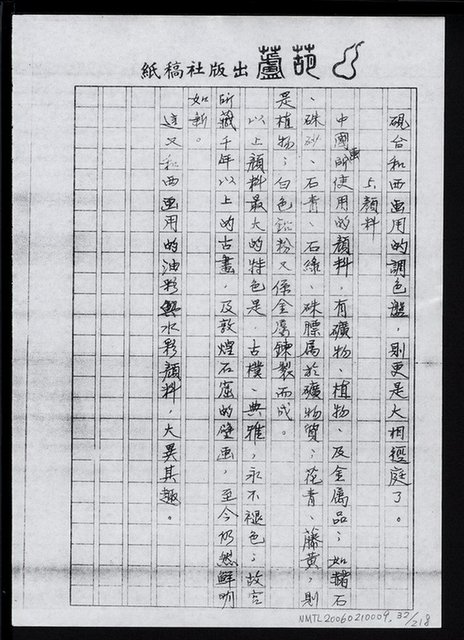 葫蘆出版社稿紙
硯台和西画用的調色盤，則更是大相徑庭了。
5.顏料
中國画所使用的顏料，有礦物、植物、及金屬品；如赭石
、硃砂、石青、石綠、硃膘屬於礦物質；花青、藤黃，則
是植物；白色鉛粉又係金屬鍊製而成。
以上顏料最大的特色是．古樸、典雅，永不褪色；故宮
所藏千年以上的古畫，及敦煌石窟的壁画，至今仍然鮮明
如新。
這又和西画用的油彩與水彩顏料，大異其趣。
NMTL20060210009, 32/218